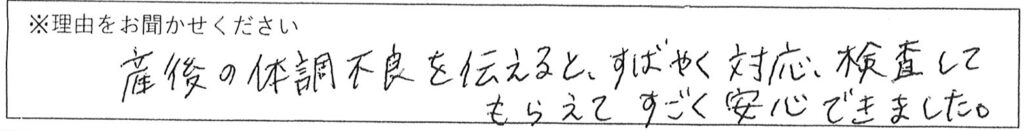 ※理由をお聞かせください
産後の体調不良を伝えると、すばやく対応、検査して
もらえてすごく安心できました。